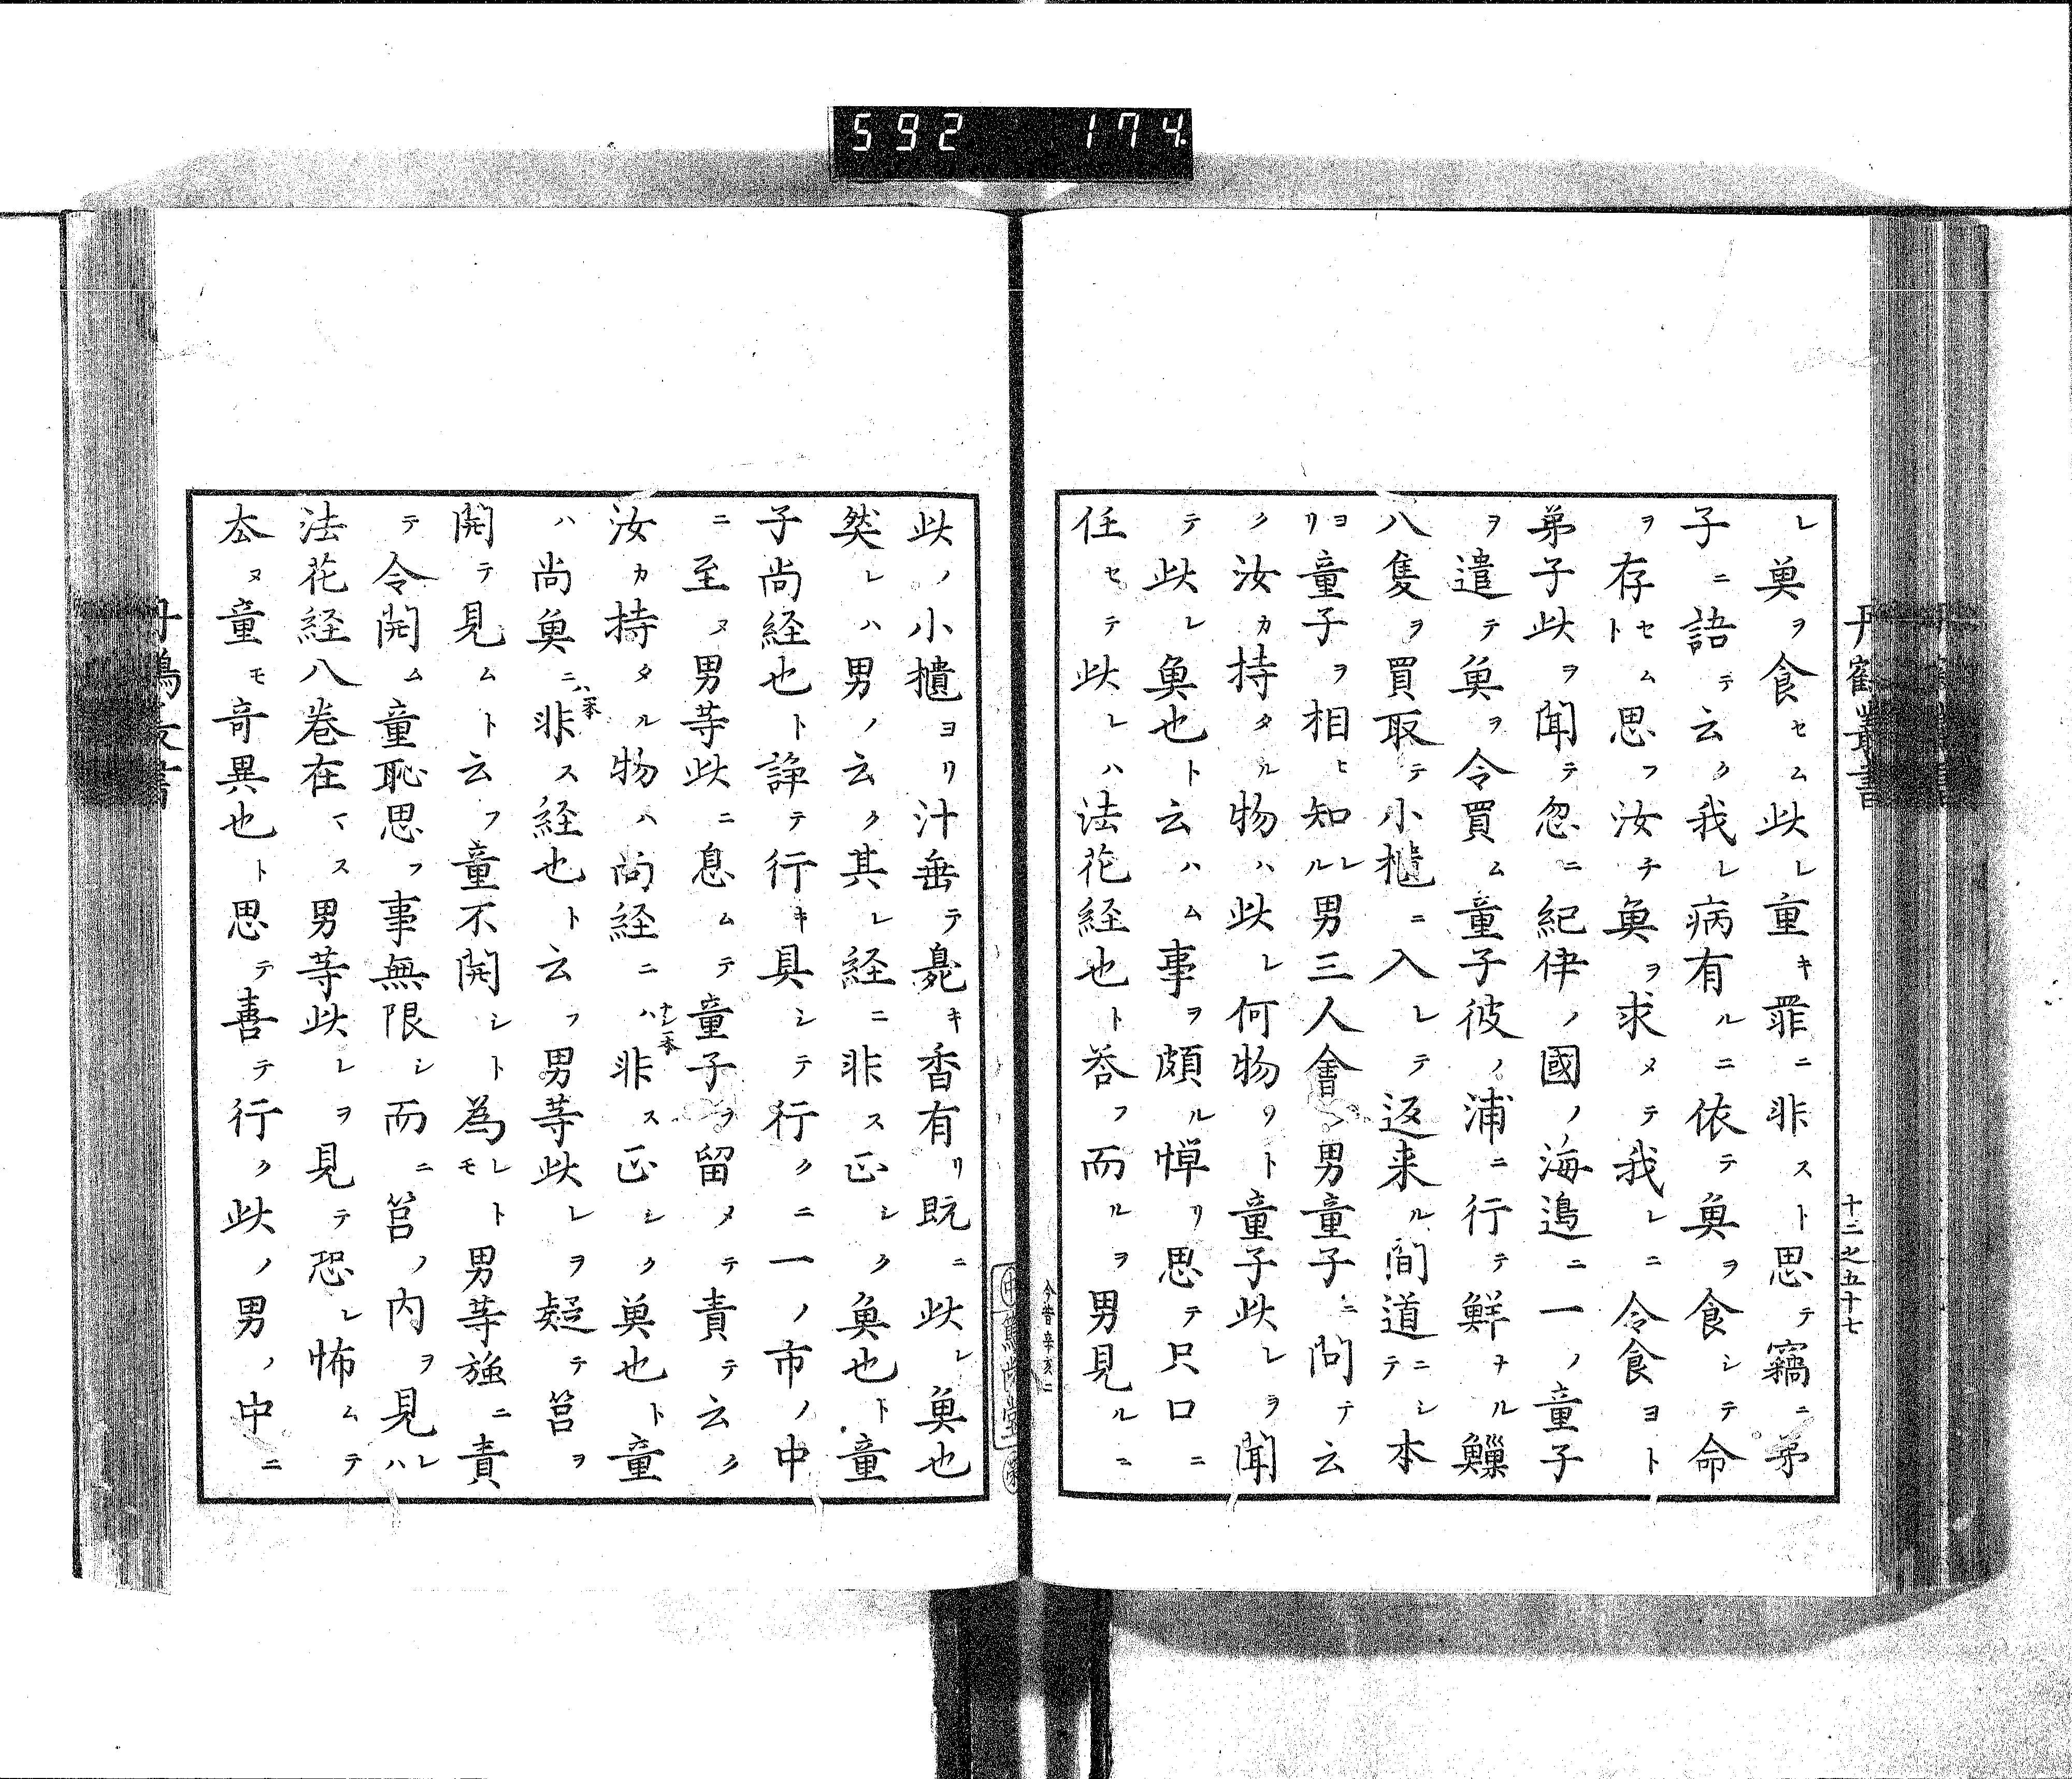 592 174
丹鶴叢書
十二之五十七
レ魚ヲ食セム此レ重キ罪ニ非ストト思テ竊ニ弟
子ニ語テ云ク我レ病有ルニ依テ魚ヲ食シテ命
ヲ存セムト思フ汝チ魚ヲ求メテ我レニ令食ヨト
弟子此ヲ聞テ忽ニ紀伊ノ國ノ海邊ニ一ノ童子
ヲ遣テ魚ヲ令買ム童子彼ノ浦ニ行テ鮮ナル鯔
八隻ヲ買取テ小樻ニ入レテ返来ル間道ニシテ本
ヨリ童子ヲ相ヒ知レル男三人會ヌ男童子ニ問テ云
ク汝カ持タル物ハ此レ何物リト童子此レヲ聞
テ此レ魚也ト云ハム事ヲ頗ル憚リ思テ只口ニ
任セテ此レハ法花経也ト荅フ而ルヲ男見ルニ
今昔辛亥ニ
此ノ小樻ヨリ汁垂テ臰キ香有リ既ニ此レ魚也
然レハ男ノ云ク其レ経ニ非ス正シク魚也ト童
子尚経也ト諍テ行キ具シテ行クニ一ノ市ノ中
ニ至ヌ男等此ニ息ムテ童子ヲ留メテ責テ云ク
汝カ持タル物ハ尚経ニハ非ス正シク魚也ト童
ハ尚魚ニ非ス経也ト云フ男等此レヲ疑テ筥ヲ
開テ見ムト云フ童不開シト為レトモ男等強ニ責
テ令開ム童恥思フ事無限シ而ニ筥ノ内ヲ見レハ
法花経八巻在マス男等此レヲ見テ恐レ怖ムテ
厺ヌ童モ奇異也ト思テ喜テ行ク此ノ男ノ中ニ